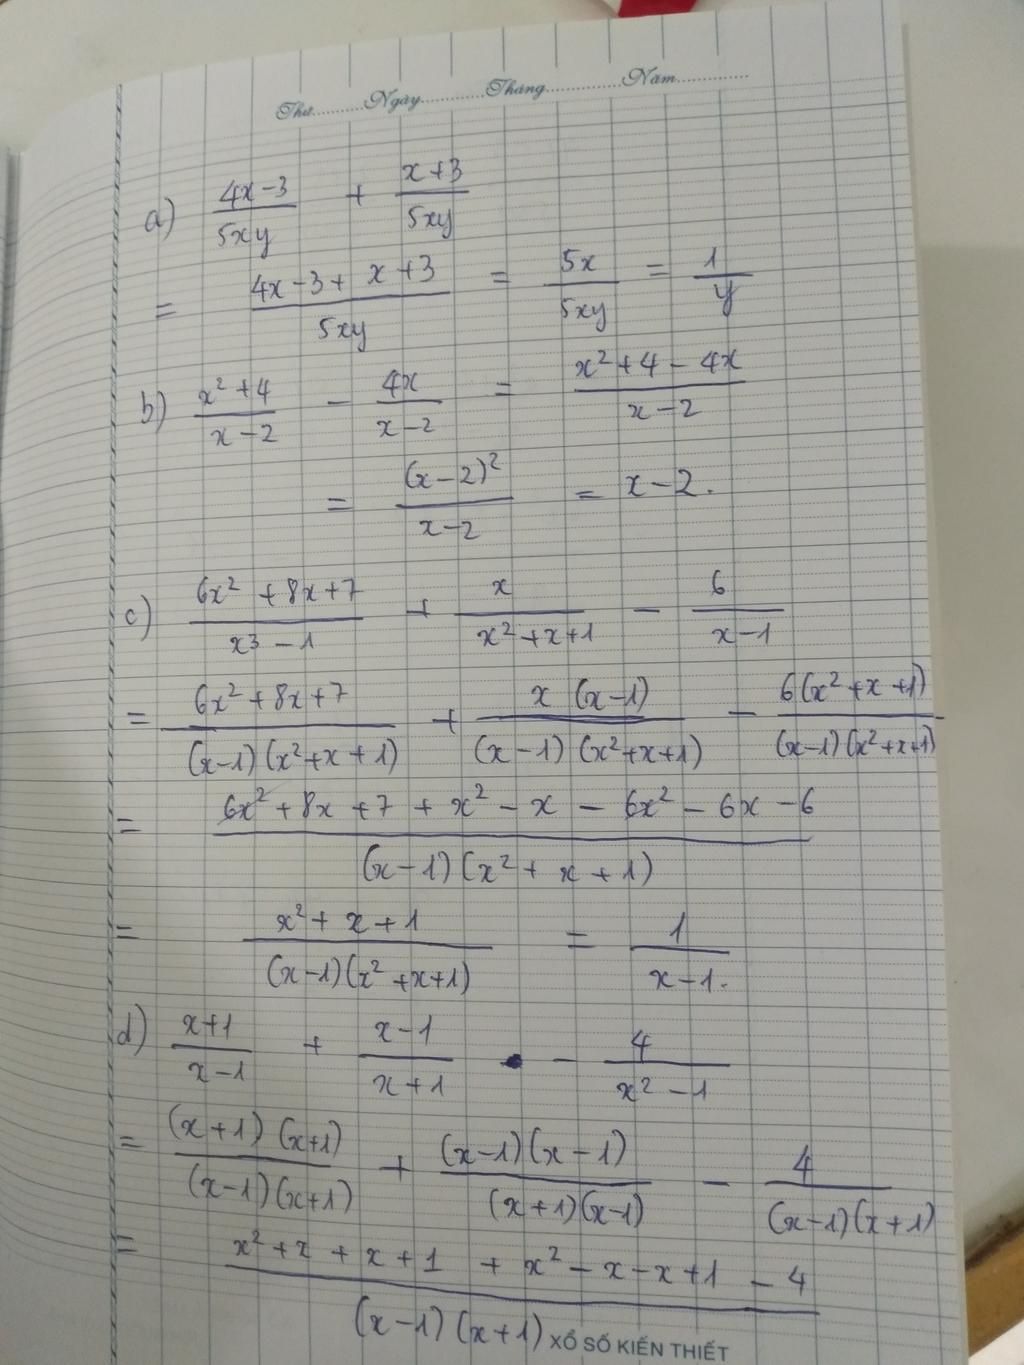 Thứ..........Ngày..........Tháng..........Năm..........
a) (4x-3)/(5xy) + (x+3)/(5xy)
= (4x-3+x+3)/(5xy) = 5x/(5xy) = 1/y
b) (x²+4)/(x-2) - 4x/(x-2) = (x²+4-4x)/(x-2)
= (x-2)²/(x-2) = x-2.
c) (6x²+8x+7)/(x³-1) + x/(x²+x+1) - 6/(x-1)
= (6x²+8x+7)/((x-1)(x²+x+1)) + x(x-1)/((x-1)(x²+x+1)) - 6(x²+x+1)/((x-1)(x²+x+1))
= (6x²+8x+7+x²-x-6x²-6x-6)/((x-1)(x²+x+1))
= (x²+x+1)/((x-1)(x²+x+1)) = 1/(x-1).
d) (x+1)/(x-1) + (x-1)/(x+1) - 4/(x²-1)
= (x+1)(x+1)/((x-1)(x+1)) + (x-1)(x-1)/((x+1)(x-1)) - 4/((x-1)(x+1))
= (x²+x+x+1+x²-x-x+1-4)/((x-1)(x+1))
XỔ SỐ KIẾN THIẾT